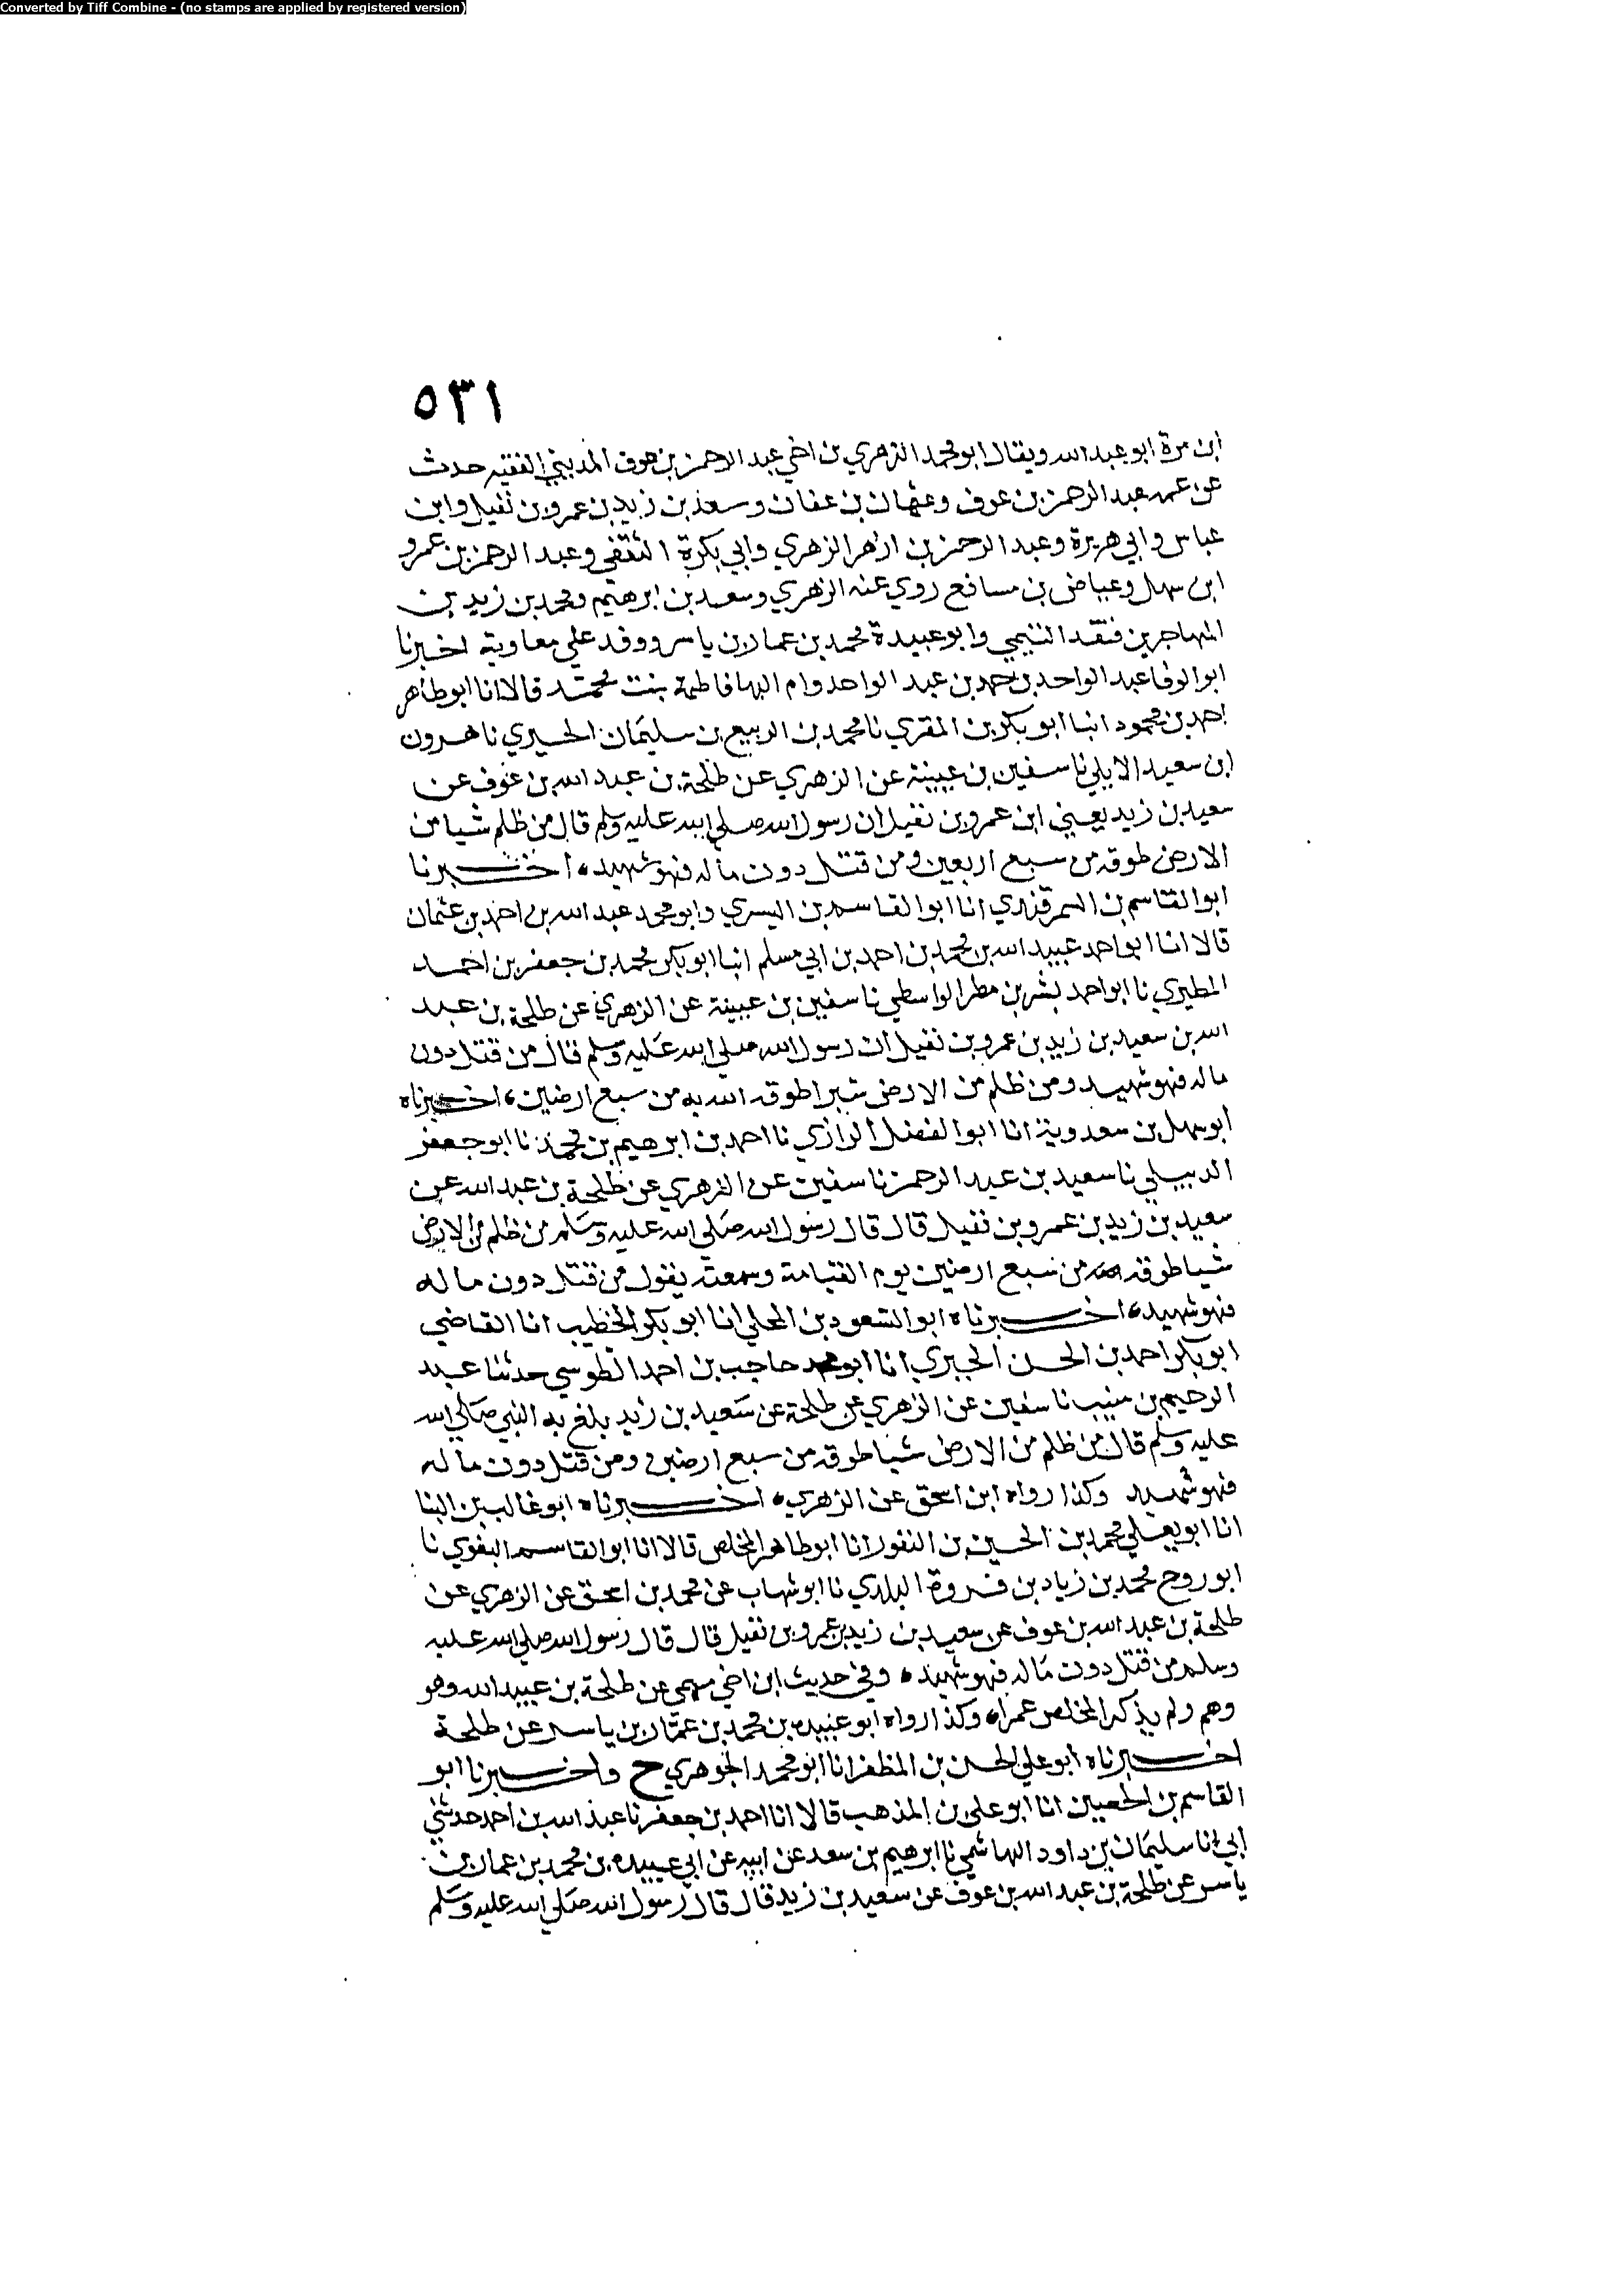 Converted by Tiff Combine - (no stamps are applied by registered version)
٥٣١
ابن مرة ابو عبد الله ويقال ابو محمد الزهري بن اخي عبد الرحمن بن عوف المديني الفقيه حدث
عن عمه عبد الرحمن بن عوف وعثمان بن عفان وسعيد بن زيد بن عمرو بن نفيل وابن
عباس وابي هريرة وعبد الرحمن بن ازهر الزهري وابي بكرة الثقفي وعبد الرحمن بن عمرو
ابن سهل وعياض بن مسافع روي عنه الزهري وسعد بن ابرهيم ومحمد بن زيد بن
المهاجر بن قنفد التيمي وابو عبيدة محمد بن عمار بن ياسر ووفد علي معاوية اخبرنا
ابو الوفا عبد الواحد بن حمد بن عبد الواحد وام البها فاطمة بنت محمد قالا انا ابو طاهر
احمد بن محمود انبا ابو بكر بن المقري نا محمد بن الربيع بن سليمان الحيري نا هرون
ابن سعيد الايلي نا سفين بن عيينة عن الزهري عن طلحة بن عبد الله بن عوف عن
سعيد بن زيد يعني ابن عمرو بن نفيل ان رسول الله صلي الله عليه وسلم قال من ظلم شيا من
الارض طوقه من سبع اربعين ومن قتل دون ماله فهو شهيد، اخبرنا
ابو القاسم بن السمرقندي انا ابو القاسم بن اليسري وابو محمد عبد الله بن احمد بن عثمان
قالا انا ابو احمد عبيد الله بن محمد بن احمد بن ابي مسلم انبا ابو بكر محمد بن جعفر بن احمد
المطيري نا ابو احمد بشر بن مطر الواسطي نا سفين بن عيينة عن الزهري عن طلحة بن عبد
الله بن سعيد بن زيد بن عمرو بن نفيل ان رسول الله صلي الله عليه وسلم قال من قتل دون
ماله فهو شهيد ومن ظلم من الارض شبرا طوقه الله به من سبع ارضين، اخبرناه
ابو سهل بن سعدوية انا ابو الفضل الرازي نا احمد بن ابرهيم بن محمد نا ابو جعفر
الديبلي نا سعيد بن عبد الرحمن نا سفين عن الزهري عن طلحة بن عبد الله عن
سعيد بن زيد بن عمرو بن نفيل قال قال رسول الله صلي الله عليه وسلم من ظلم من الارض
شيا طوقه الله من سبع ارضين يوم القيامة وسمعته يقول من قتل دون ماله
فهو شهيد، اخبرناه ابو السعود بن المحلي انا ابو بكر الخطيب انا القاضي
ابو بكر احمد بن الحسن الحيري انا ابو محمد حاجب بن احمد الطوسي حدثنا عبد
الرحيم بن منيب نا سفين عن الزهري عن طلحة عن سعيد بن زيد يلغ به النبي صلي الله
عليه وسلم قال من ظلم من الارض شيا طوقه من سبع ارضين ومن قتل دون ماله
فهو شهيد وكذا رواه ابن اسحق عن الزهري، اخبرناه ابو غالب بن البنا
انا ابو يعلي محمد بن الحسين بن النقور انا ابو طاهر المخلص قالا انا ابو القاسم البغوي نا
ابو روح محمد بن زياد بن فروة البلدي نا ابو شهاب عن محمد بن اسحق عن الزهري عن
طلحة بن عبد الله بن عوف عن سعيد بن زيد بن عمرو بن نفيل قال قال رسول الله صلي الله عليه
وسلم من قتل دون ماله فهو شهيد، وفي حديث ابن اخي ميمي عن طلحة بن عبيد الله وهو
وهم ولم يذكر المخلص عمرا، وكذا رواه ابو عبيده بن محمد بن عمار بن ياسر عن طلحة
اخبرناه ابو علي الحسن بن المظفر انا ابو محمد الجوهري ح واخبرنا ابو
القاسم بن الحصين انا ابو علي بن المذهب قالا انا احمد بن جعفر نا عبد الله بن احمد حدثني
ابي انا سليمان بن داود الهاشمي نا ابرهيم بن سعد عن ابيه عن ابي عبيده بن محمد بن عمار بن
ياسر عن طلحة بن عبد الله بن عوف عن سعيد بن زيد قال قال رسول الله صلي الله عليه وسلم